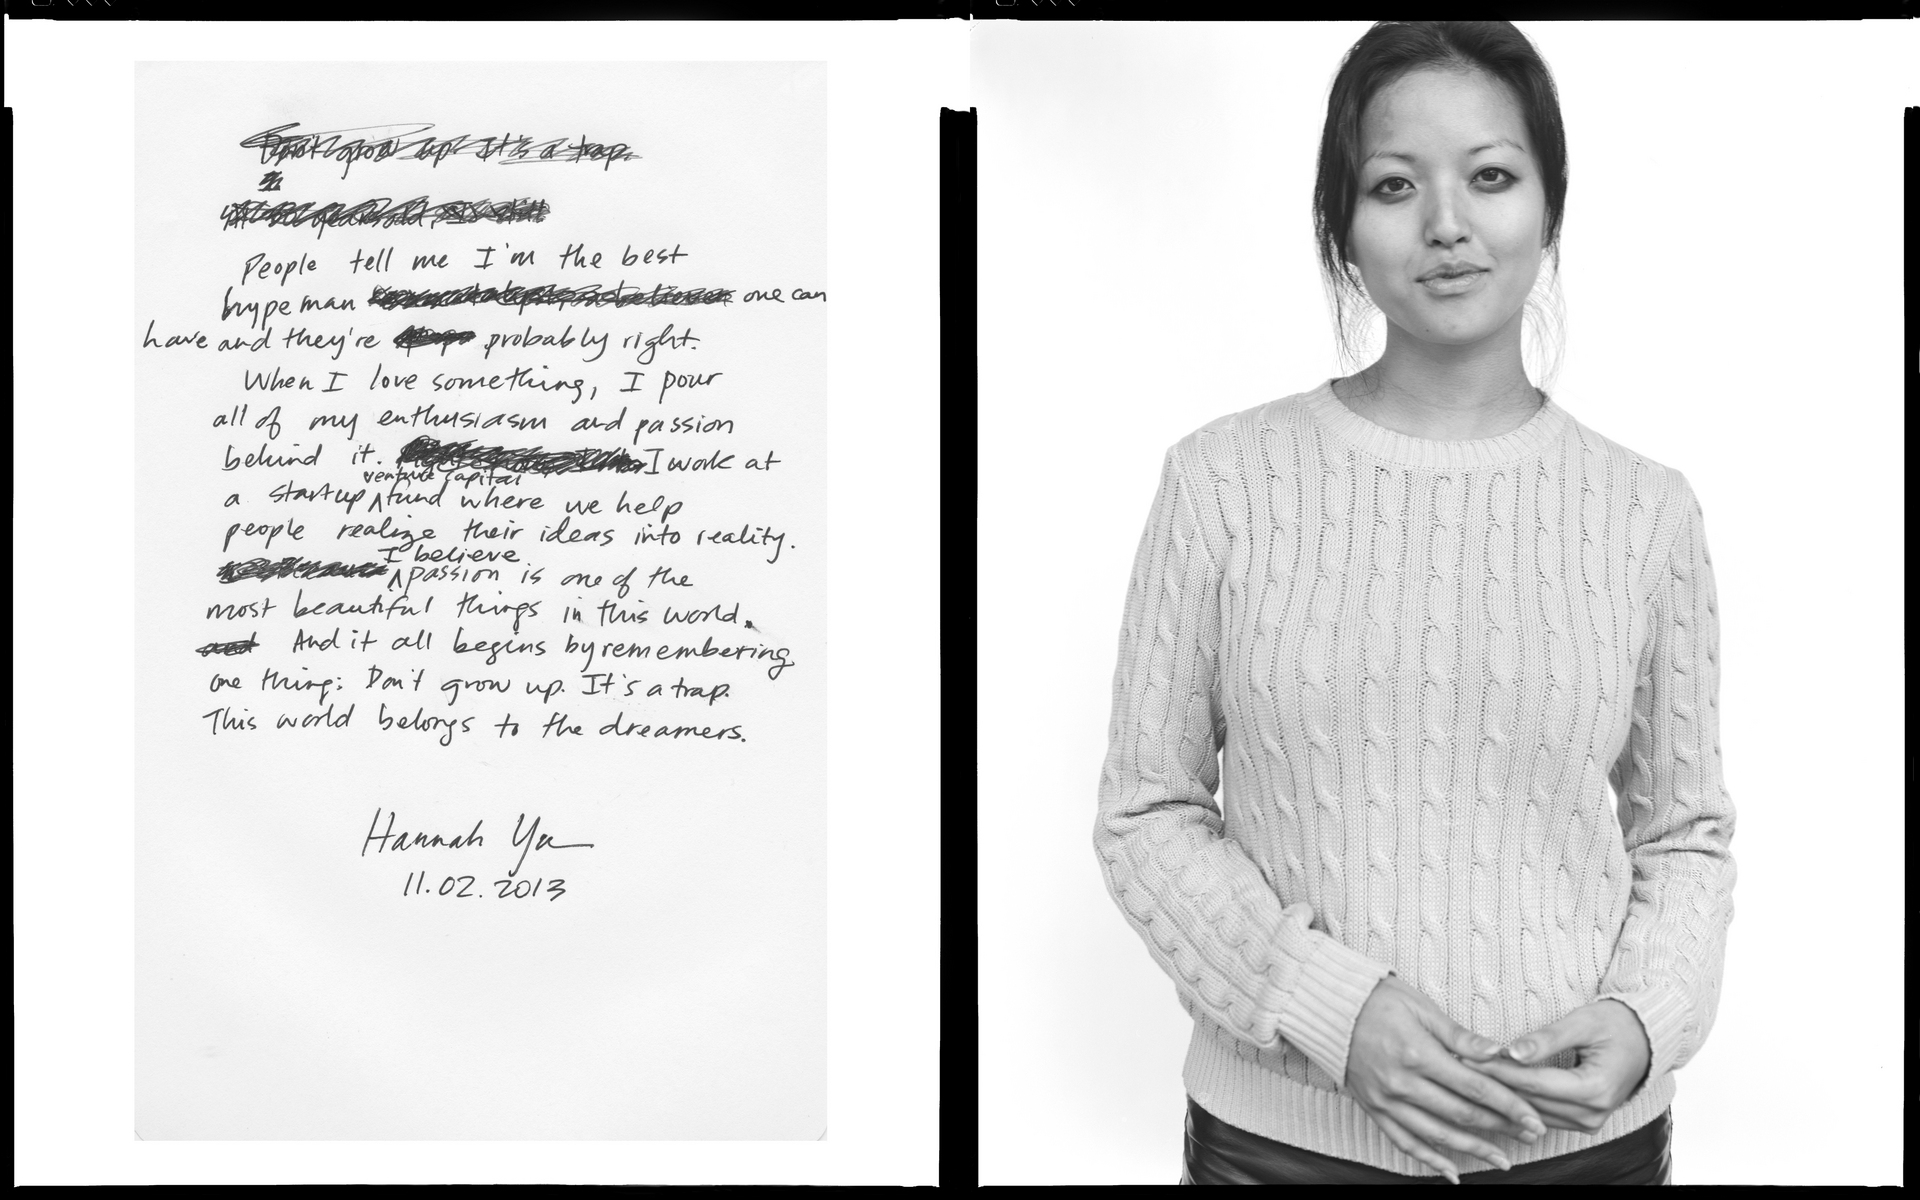 Don't grow up. It's a trap.
People tell me I'm the best
hype man one can
have and they're probably right.
When I love something, I pour
all of my enthusiasm and passion
behind it. I work at
venture capital
a startup fund where we help
people realize their ideas into reality.
I believe
passion is one of the
most beautiful things in this world.
and And it all begins by remembering
one thing: Don't grow up. It's a trap.
This world belongs to the dreamers.
Hannah Yu
11.02.2013